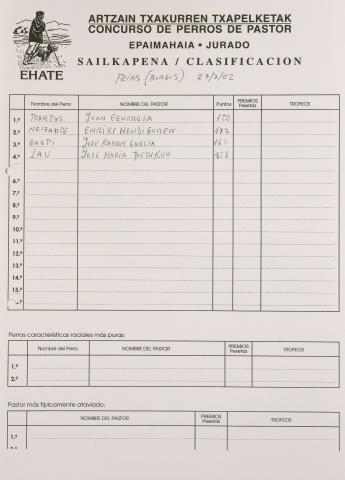 ARTZAIN TXAKURREN TXAPELKETAK
CONCURSO DE PERROS DE PASTOR
EPAIMAHAIA • JURADO
SAILKAPENA / CLASIFICACION
EHATE
FRIAS (BURGOS) 27/7/02
Nombre del Perro NOMBRE DEL PASTOR Puntos PREMIOS Pesetas TROFEOS
1.º TRAMPAS JUAN EGURROLA
2.º ENRIKE MENDIGUREN 172
3.º ZAZPI JOSE RAMON GARCIA
4.º LAU JOSE MARIA
5.º
6.º
7.º
8.º
9.º
10.º
11.º
12.º
13.º
14.º
15.º
Perros características raciales más puras:
Nombre del Perro NOMBRE DEL PASTOR PREMIOS Pesetas TROFEOS
1.º
2.º
Pastor más típicamente ataviado:
NOMBRE DEL PASTOR PREMIOS Pesetas TROFEOS
1.º